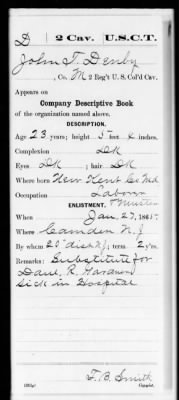 D | 2 Cav. | U.S.C.T.
John T. Denby
, Co. M, 2 Reg't U. S. Col'd Cav.
Appears on
Company Descriptive Book
of the organization named above.
DESCRIPTION.
Age 23 years; height 5 feet 4 inches.
Complexion DK
Eyes DK ; hair DK
Where born New Kent Co Md
Occupation Laborer
ENLISTMENT. & Muster
When Jan. 27, 1865.
Where Camden N. J
By whom 20" dist NJ; term 2 y'rs.
Remarks: Substitute for
R.
Sick in Hospital
F. B. Smith
Copyist.